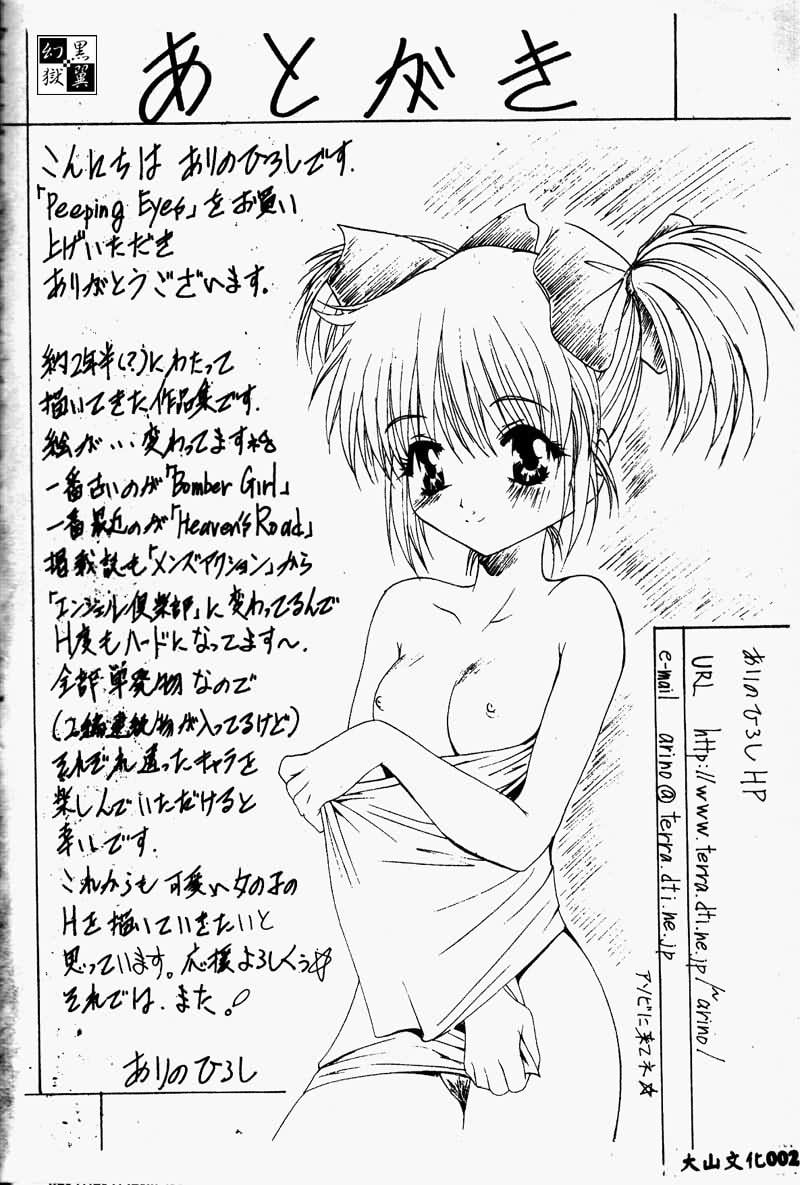 幻黒
獄翼
あとがき
こんにちは ありのひろしです.
「Peeping Eyes」をお買い
上げいただき
ありがとうございます.
約2年半(?)にわたって
描いてきた作品集です.
絵が・・・変わってますネ
一番古いのが「Bomber Girl」
一番最近のが「Heaven's Road」
掲載誌も「メンズアクション」から
「エンジェル倶楽部」に変わってるんで
H度もハードになってます〜.
全部単発物なので
(2編連続物が入ってるけど)
それぞれ違ったキャラを
楽しんでいただけると
幸いです.
これからも可愛い女の子の
Hを描いていきたいと
思っています。応援よろしくぅ☆
それでは、また。
ありのひろし
ありのひろしHP
URL http://www.terra.dti.ne.jp/~arino/
e-mail arino@terra.dti.ne.jp
アソビに来てネ☆
大山文化002